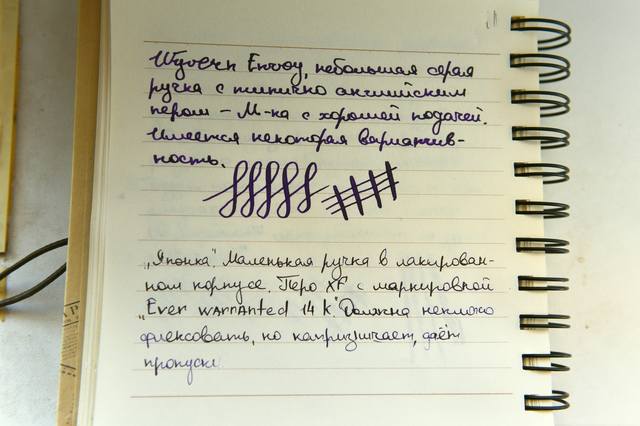 Wyvern Envoy, небольшая серая
ручка с типично английским
пером – М-ка с хорошей подачей.
Имеется некоторая вариатив-
ность.
„Японка". Маленькая ручка в лакирован-
ном корпусе. Перо XF с маркировкой
„Ever warranted 14 k". Должна немного
флексовать, но капризничает, даёт
пропуски